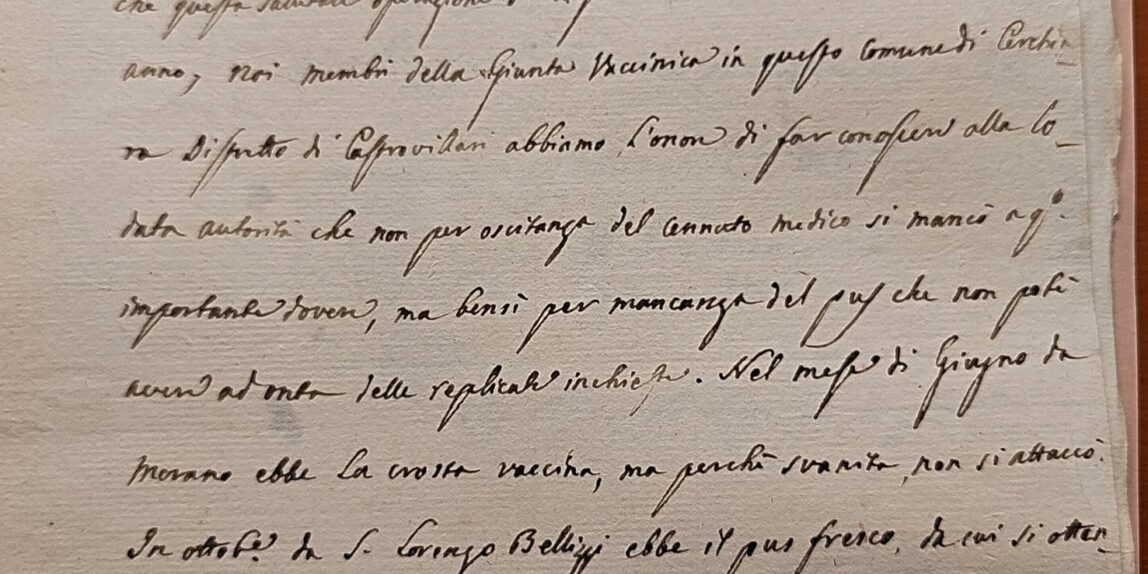 che questa salutare operazione
anno, noi membri della Giunta Vaccinica in questo Comune di Cerchia_
ra Distretto di Castrovillari abbiamo l'onore di far conoscere alla lo_
data autorità che non per oscitanza del cennato medico si mancò a q.º
importante dovere, ma bensì per mancanza del pus che non potè
avere ad onta delle replicate inchieste. Nel mese di Giugno da
Morano ebbe la crosta vaccina, ma perchè svanita, non si attaccò.
In ottob.e da S. Lorenzo Bellizzi ebbe il pus fresco, da cui si otten_